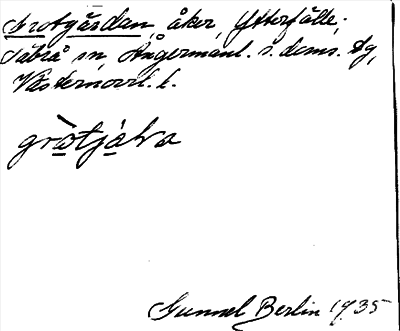 Grotgärdan, åker, Ytterfälle,
Säbrå sn, Ångermanl. s. doms. dg,
Västernorrl. l.
gròtjáḷa
Gunnel Berlin 1935